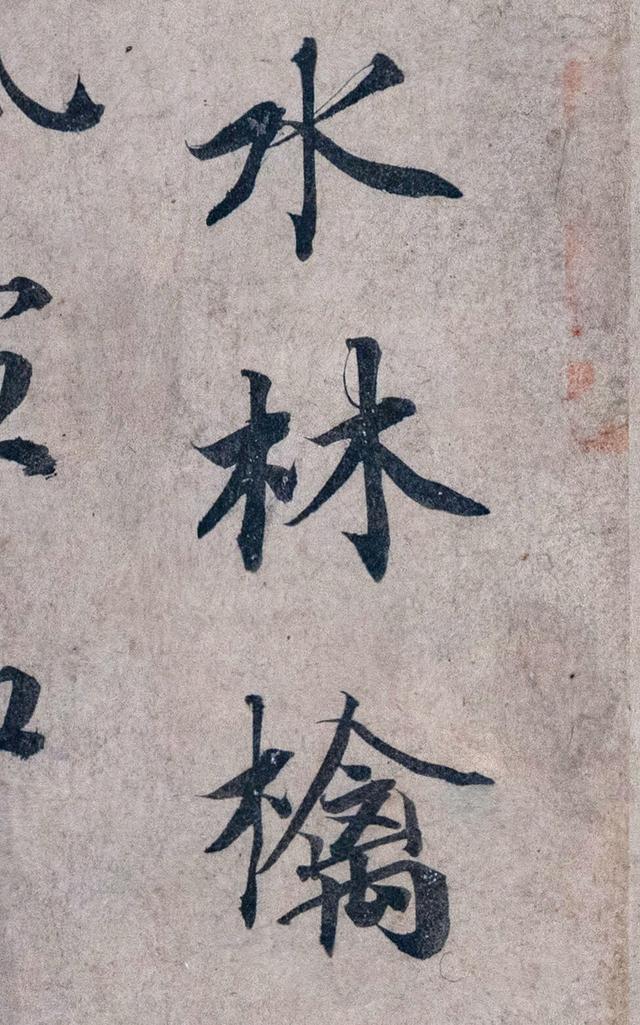 水林檎